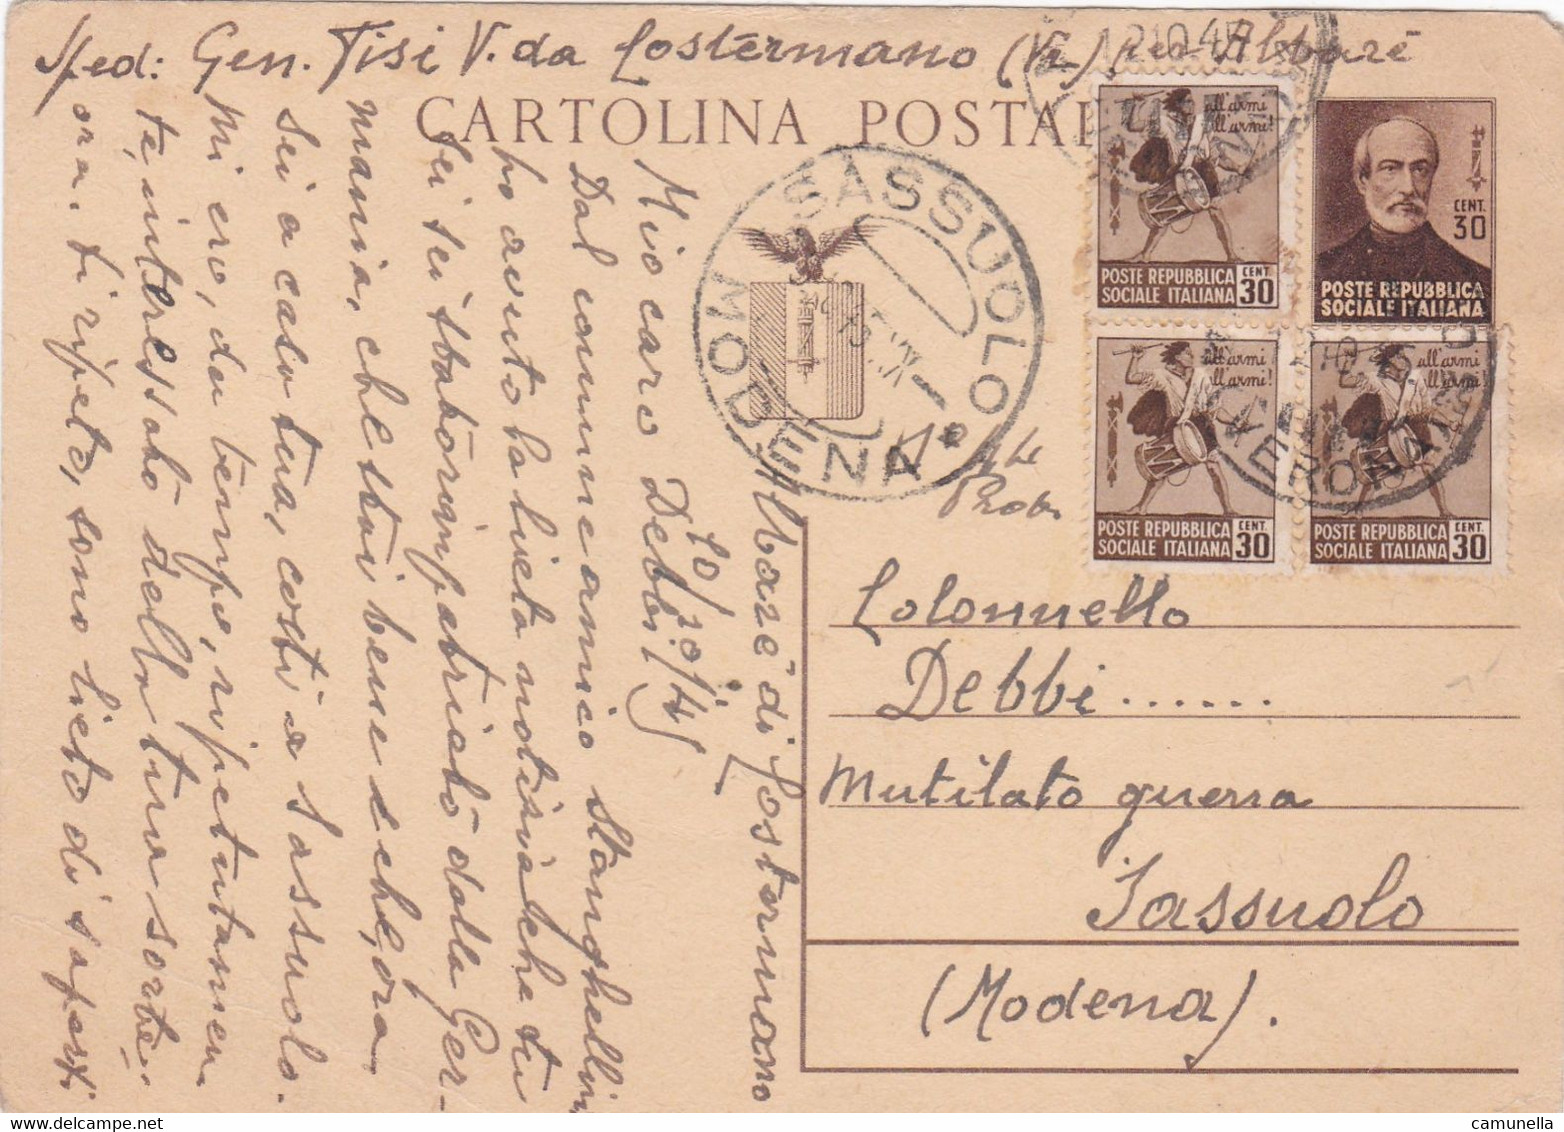 Sped: Gen. Tisi V. da Costermano (Vr) per Albarè
CARTOLINA POSTALE
12 10 45
all'armi
all'armi!
POSTE REPUBBLICA CENT.
SOCIALE ITALIANA 30
CENT.
30
POSTE REPUBBLICA
SOCIALE ITALIANA
all'armi
all'armi!
POSTE REPUBBLICA CENT.
SOCIALE ITALIANA 30
all'armi
all'armi!
POSTE REPUBBLICA CENT.
SOCIALE ITALIANA 30
SASSUOLO
MODENA
VERONA
Albarè di Costermano
10/10/45
Mio caro Debbi,
Dal comune amico Stanghellini
ho avuto la lieta notizia che tu
sei sei stato rimpatriato dalla Ger-
mania, che stai bene e che, ora,
sei a casa tua, costì a Sassuolo.
Mi ero, da tempo, ripetutamen
te, interessato della tua sorte;
ora, ti ripeto, sono lieto di saperti
Colonnello
Debbi ......
Mutilato guerra
Sassuolo
(Modena).
camunella